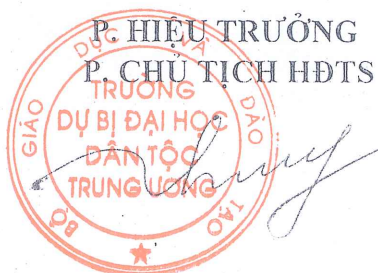 P. HIỆU TRƯỞNG
P. CHỦ TỊCH HĐTS
BỘ GIÁO DỤC VÀ ĐÀO TẠO
TRƯỜNG
DỰ BỊ ĐẠI HỌC
DÂN TỘC
TRUNG ƯƠNG